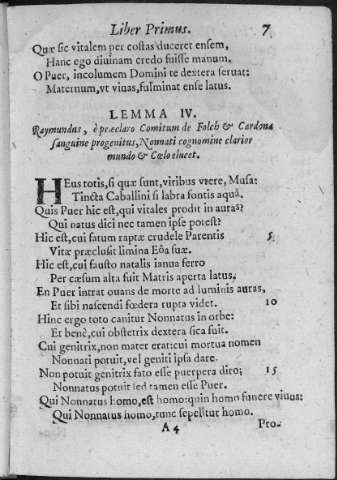 Liber Primus. 7
Quæ sic vitalem per costas duceret ensem,
Hanc ego divinam credo fuisse manum.
O Puer, incolumem Domini te dextera servat:
Maternum, ut vivas, fulminat ense latus.
LEMMA IV.
Raymundus, è præclaro Comitum de Folch & Cardona
sanguine progenitus, Nonnati cognomine clarior
mundo & Cœlo elucet.
HEus totis, si quæ sunt, viribus vtere, Musa:
Tincta Caballini si labra fontis aquâ.
Quis Puer hic est, qui vitales prodit in auras?
Qui natus dici nec tamen ipse potest?
Hic est, cui fatum raptæ crudele Parentis 5
Vitæ præclusit limina Eôa suæ.
Hic est, cui fausto natalis ianua ferro
Per cæsum alta fuit Matris aperta latus,
En Puer intrat ovans de morte ad luminis auras,
Et sibi nascendi fœdera rupta videt. 10
Hinc ergo toto canitur Nonnatus in orbe:
Et benè, cui obstetrix dextera sica fuit.
Cui genitrix, non mater erat: cui mortua nomen
Nonnati potuit, vel geniti ipsa dare.
Non potuit genitrix fato esse puerpera diro; 15
Nonnatus potuit sed tamen esse Puer.
Qui Nonnatus homo, est homo: quin homo funere vivus:
Qui Nonnatus homo, tunc sepelitur homo.
A 4 Pro-